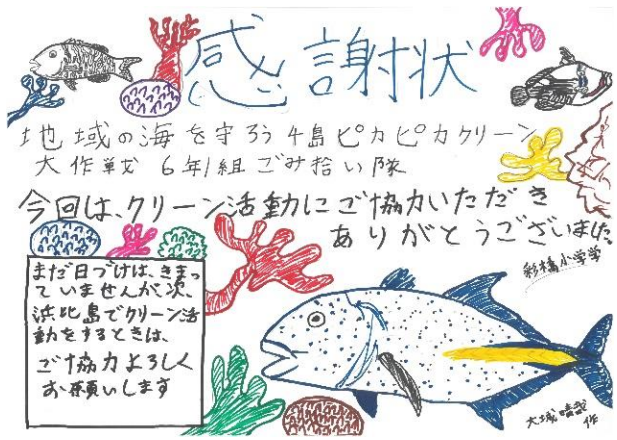 感謝状
地域の海を守ろう4島ピカピカクリーン
大作戦 6年1組ごみ拾い隊
今回は、クリーン活動にご協力いただき
ありがとうございました。
彩橋小学学
まだ日づけは、きまっ
ていませんが、次、
浜比島でクリーン活
動をするときは、
ご協力よろしく
お願いします
大城
作